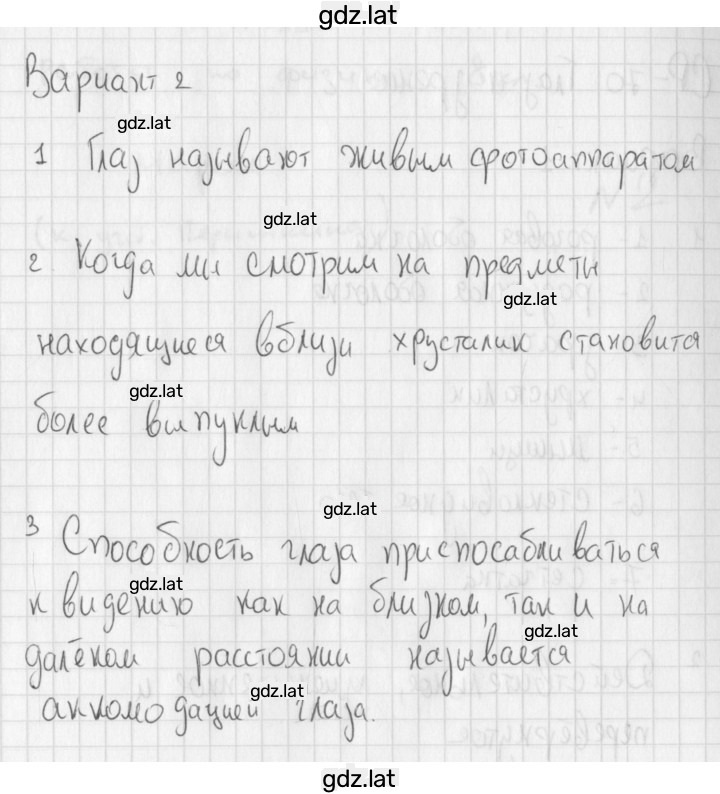 gdz.lat
Вариант 2
gdz.lat
1 Глаз называют живым фотоаппаратом
gdz.lat
2. Когда мы смотрим на предметы
gdz.lat
находящиеся вблизи хрусталик становится
gdz.lat
более выпуклым
gdz.lat
3 Способность глаза приспосабливаться
gdz.lat
к видению как на близком, так и на
gdz.lat
далёком расстоянии называется
gdz.lat
аккомодацией глаза.
gdz.lat